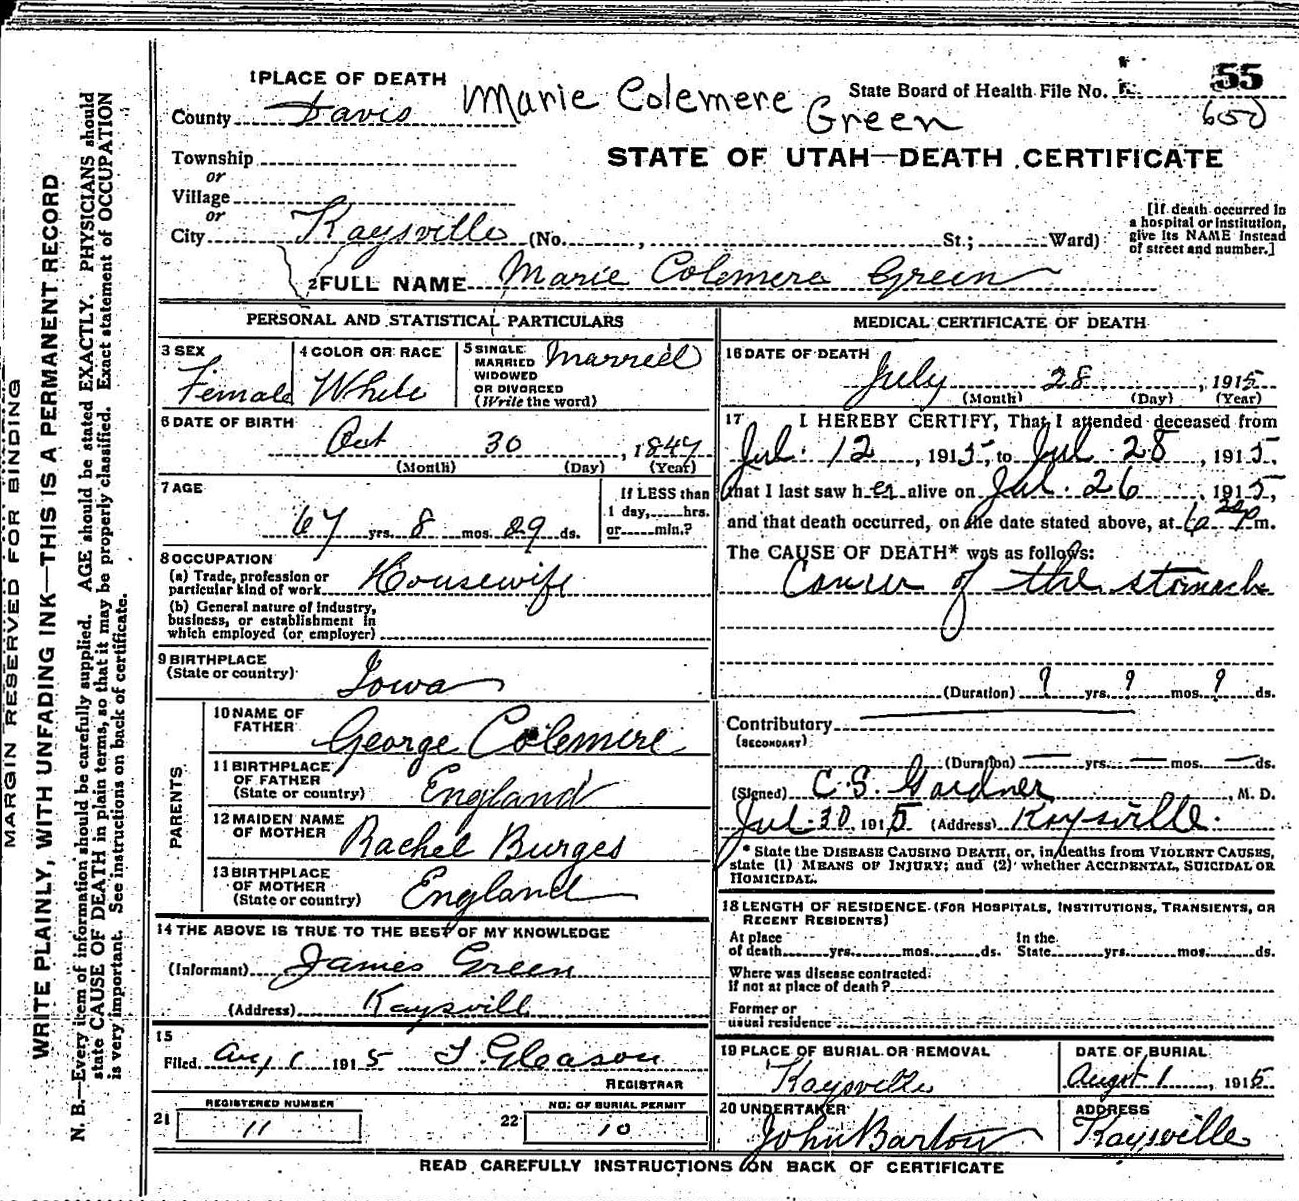 MARGIN RESERVED FOR BINDING
WRITE PLAINLY, WITH UNFADING INK—THIS IS A PERMANENT RECORD
N. B.—Every item of information should be carefully supplied. AGE should be stated EXACTLY. PHYSICIANS should
state CAUSE OF DEATH in plain terms, so that it may be properly classified. Exact statement of OCCUPATION
is very important. See instructions on back of certificate.
1 PLACE OF DEATH
Marie Colemere Green
State Board of Health File No. 55
650
County Davis
STATE OF UTAH—DEATH CERTIFICATE
Township
or
Village
or
City Kaysville (No. , St.; Ward)
[If death occurred in
a hospital or institution,
give its NAME instead
of street and number.]
2 FULL NAME Marie Colemere Green
PERSONAL AND STATISTICAL PARTICULARS
3 SEX
Female
4 COLOR OR RACE
White
5 SINGLE
MARRIED
WIDOWED
OR DIVORCED
(Write the word)
Married
6 DATE OF BIRTH
Oct 30, 1847
(Month) (Day) (Year)
7 AGE
67 yrs. 8 mos. 29 ds.
If LESS than
1 day, hrs.
or min.?
8 OCCUPATION
(a) Trade, profession or
particular kind of work Housewife
(b) General nature of industry,
business, or establishment in
which employed (or employer)
9 BIRTHPLACE
(State or country)
Iowa
PARENTS
10 NAME OF
FATHER
George Colemere
11 BIRTHPLACE
OF FATHER
(State or country)
England
12 MAIDEN NAME
OF MOTHER
Rachel Burges
13 BIRTHPLACE
OF MOTHER
(State or country)
England
14 THE ABOVE IS TRUE TO THE BEST OF MY KNOWLEDGE
(Informant) James Green
(Address) Kaysvill
15
Filed Aug 1 1915 T. Gleason
REGISTRAR
21 REGISTERED NUMBER
11
22 NO. OF BURIAL PERMIT
10
MEDICAL CERTIFICATE OF DEATH
16 DATE OF DEATH
July 28, 1915
(Month) (Day) (Year)
17 I HEREBY CERTIFY, That I attended deceased from
Jul. 12, 1915, to Jul 28, 1915,
that I last saw her alive on Jul. 26, 1915,
and that death occurred, on the date stated above, at 6 p m.
The CAUSE OF DEATH* was as follows:
Cancer of the stomach
(Duration) ? yrs. ? mos. ? ds.
Contributory
(SECONDARY)
(Duration) — yrs. — mos. — ds.
(Signed) C. S. Gardner, M. D.
Jul. 30, 1915 (Address) Kaysville.
* State the DISEASE CAUSING DEATH, or, in deaths from VIOLENT CAUSES,
state (1) MEANS OF INJURY; and (2) whether ACCIDENTAL, SUICIDAL OR
HOMICIDAL.
18 LENGTH OF RESIDENCE (FOR HOSPITALS, INSTITUTIONS, TRANSIENTS, OR
RECENT RESIDENTS)
At place
of death yrs. mos. ds.
In the
State yrs. mos. ds.
Where was disease contracted,
If not at place of death?
Former or
usual residence
19 PLACE OF BURIAL OR REMOVAL
Kaysville
DATE OF BURIAL
August 1, 1915
20 UNDERTAKER
John Barlow
ADDRESS
Kaysville
READ CAREFULLY INSTRUCTIONS ON BACK OF CERTIFICATE